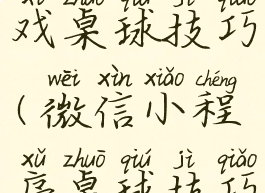 xì zhuō qiú jì qiǎo
戏桌球技巧
wēi xìn xiǎo chéng
(微信小程
xǔ zhuō qiú jì qiǎo
序桌球技巧